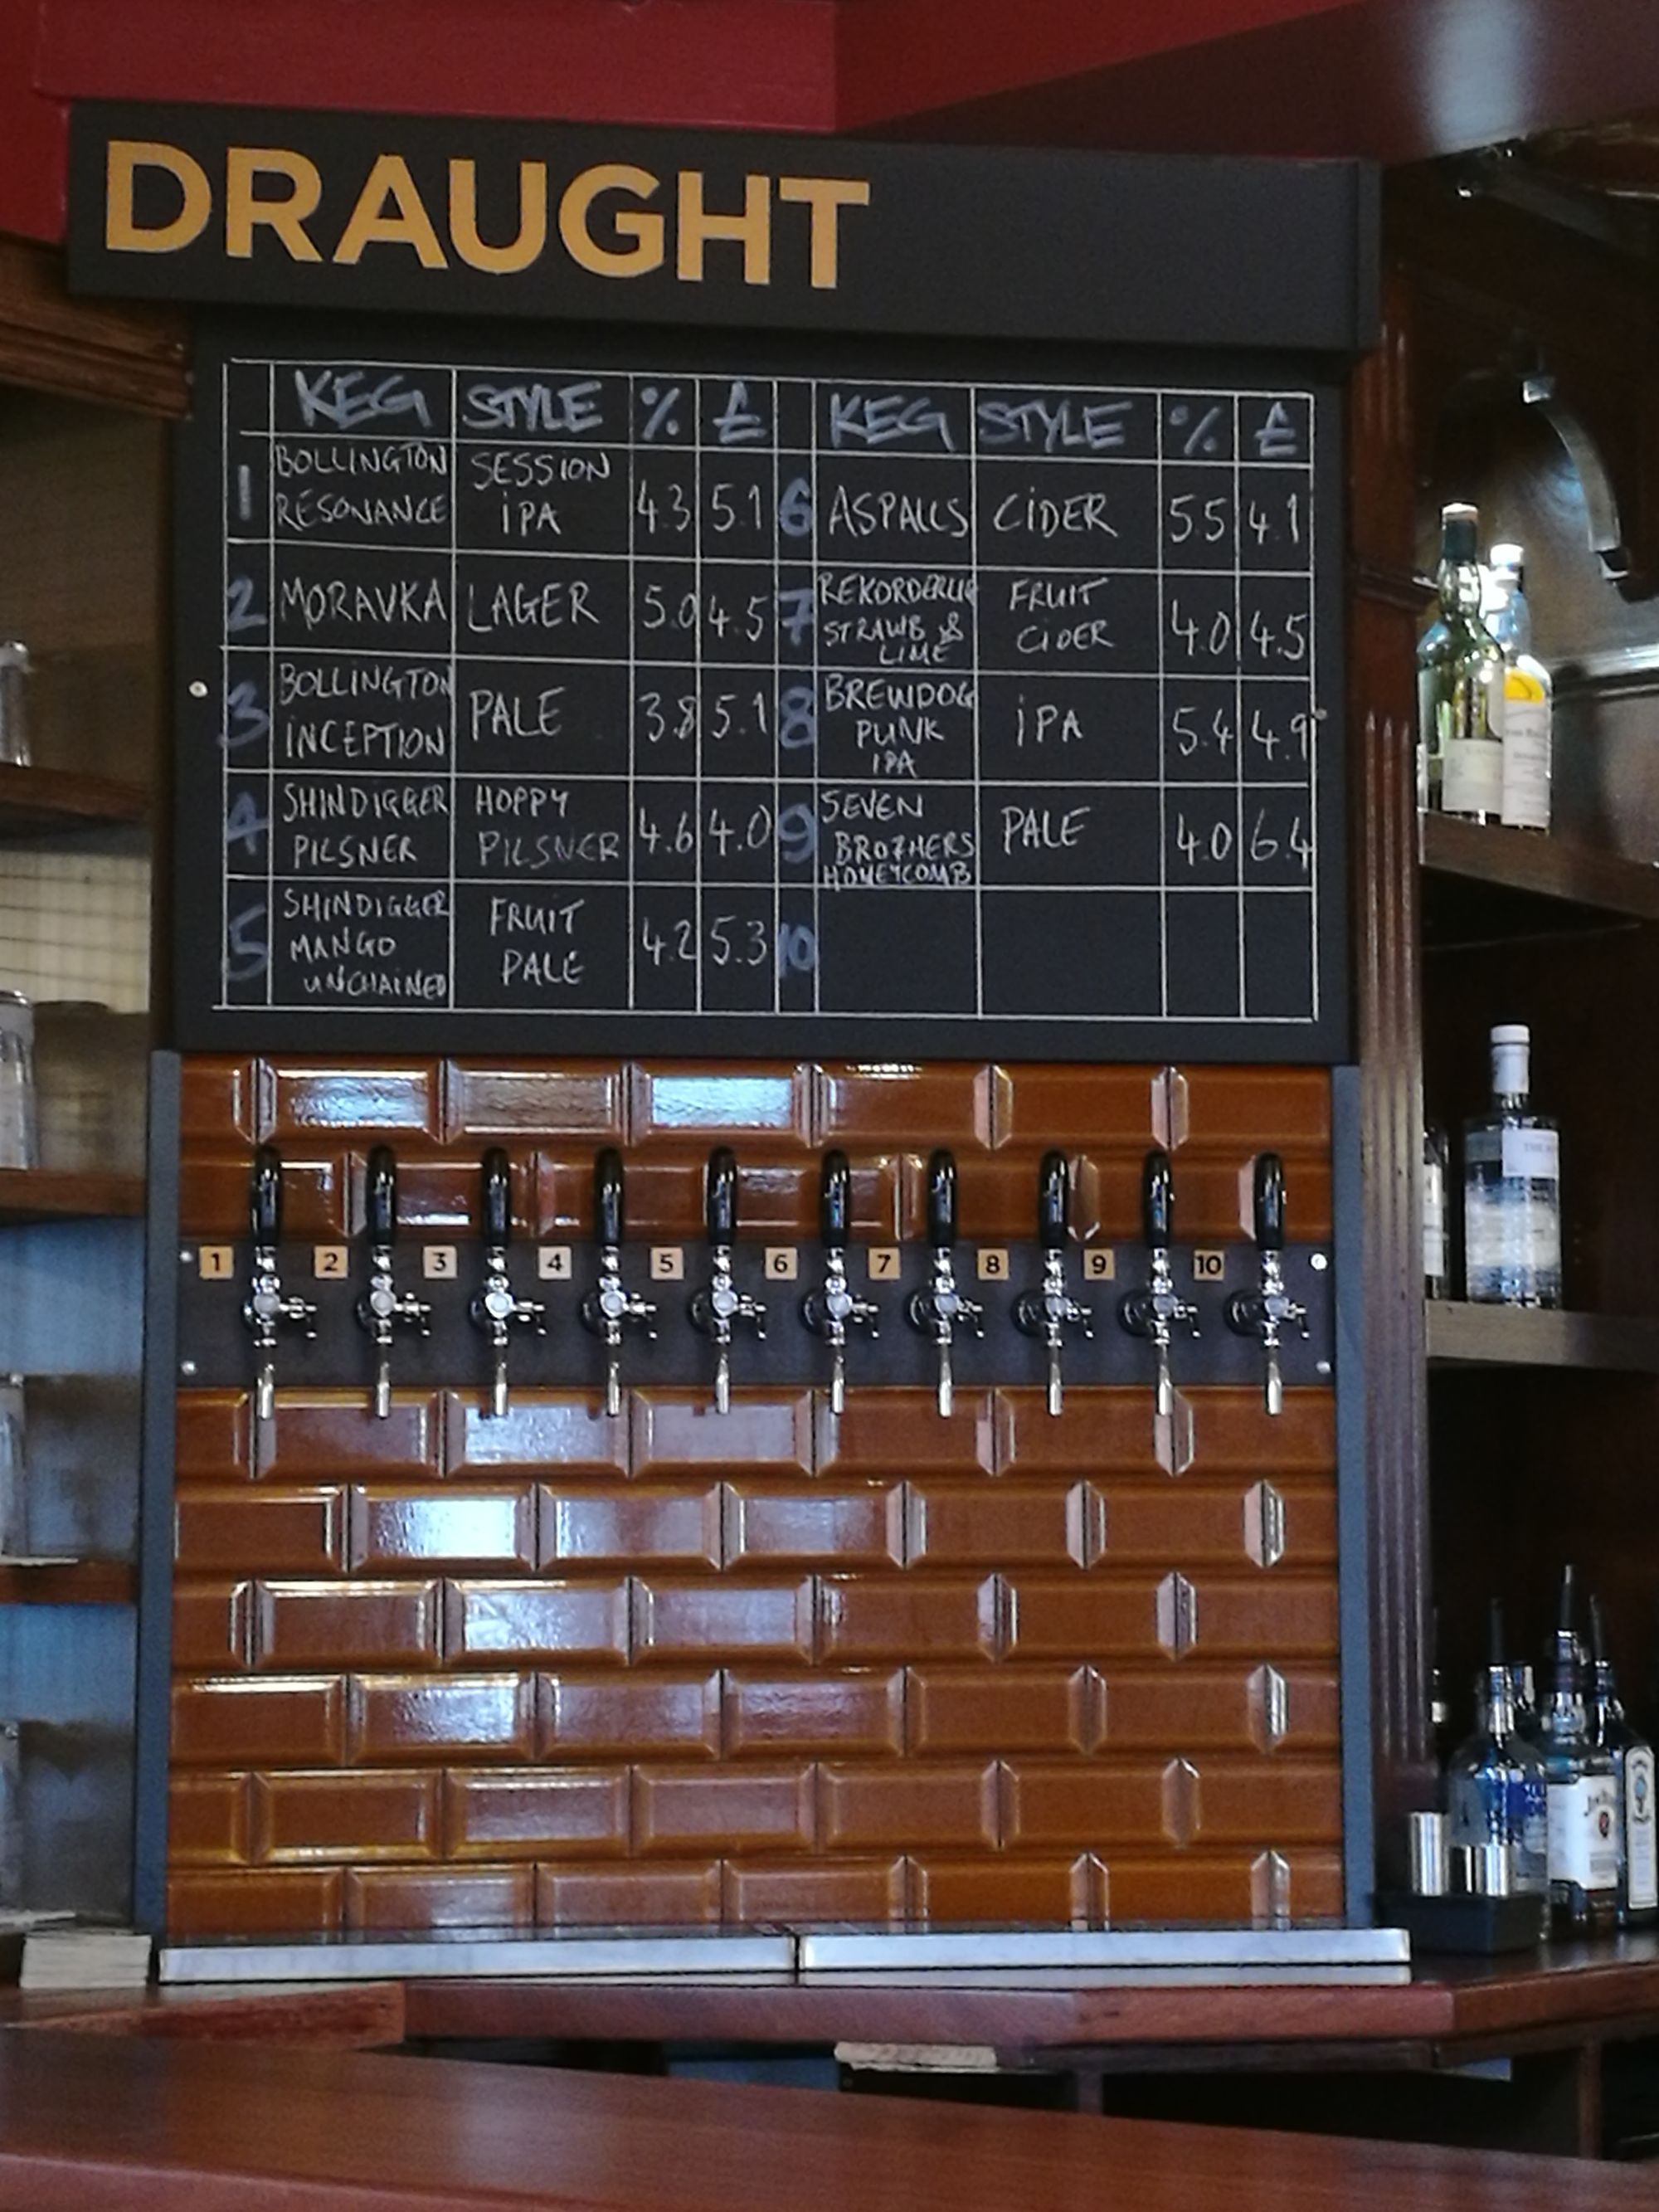 DRAUGHT
KEG STYLE % £ KEG STYLE % £
1 BOLLINGTON RESONANCE SESSION iPA 4.3 5.1 6 ASPALLS CiDER 5.5 4.1
2 MORAVKA LAGER 5.0 4.5 7 REKORDERLIG STRAWB & LIME FRUIT CiDER 4.0 4.5
3 BOLLINGTON iNCEPTION PALE 3.8 5.1 8 BREWDOG PUNK IPA iPA 5.4 4.9
4 SHINDIGGER PILSNER HOPPY PILSNER 4.6 4.0 9 SEVEN BROTHERS HONEYCOMB PALE 4.0 6.4
5 SHINDIGGER MANGO UNCHAINED FRUIT PALE 4.2 5.3 10
1 2 3 4 5 6 7 8 9 10